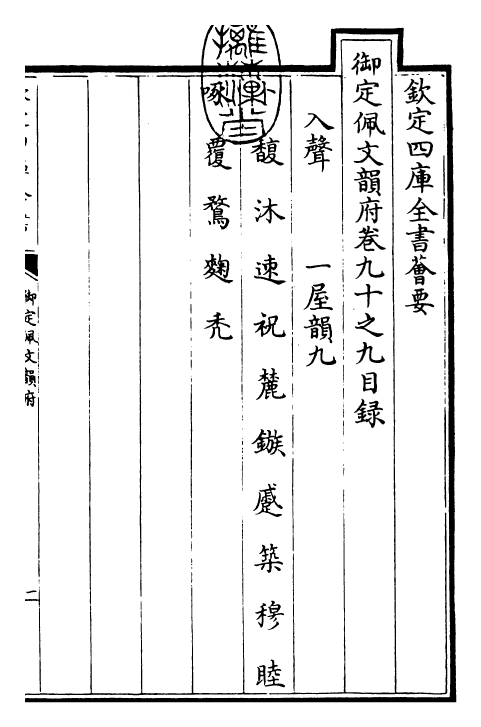 欽定四庫全書薈要
御定佩文韻府卷九十之九目録
入聲 一屋韻九
馥沐速祝麓鏃蹙築穆睦
啄覆鶩麴禿
御定佩文韻府
二